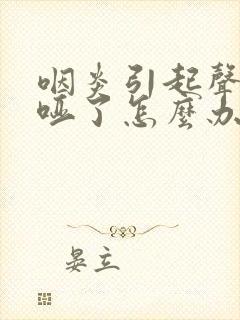 咽炎引起聲
啞了怎麼办
晏立